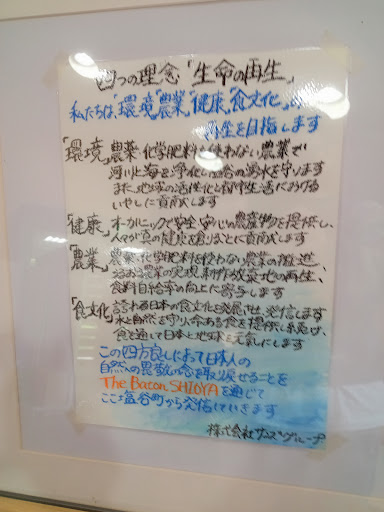 四つの理念「生命の再生」
私たちは、「環境」「農業」「健康」「食文化」の
再生を目指します
「環境」農薬・化学肥料を使わない農業で
河川と海を浄化し塩谷の湧水を守ります
また、地域の活性化と
いやしに貢献します
「健康」オーガニックで安全・安心の農産物を提供し、
人々が真の健康を創ることに貢献します
「農業」農薬・化学肥料を使わない農業の推進、
農業の実現、耕作放棄地の再生、
食料自給率の向上に寄与します
「食文化」誇れる日本の食文化を発展させ、発信します
水と自然を守り、命ある食を提供し
食を通して日本と地球を元気にします
この四方良しによって日本人の
自然への畏敬の念を取り戻せることを
The Bacon SHIOYAを通じて
ここ塩谷町から発信していきます
株式会社サンズグループ